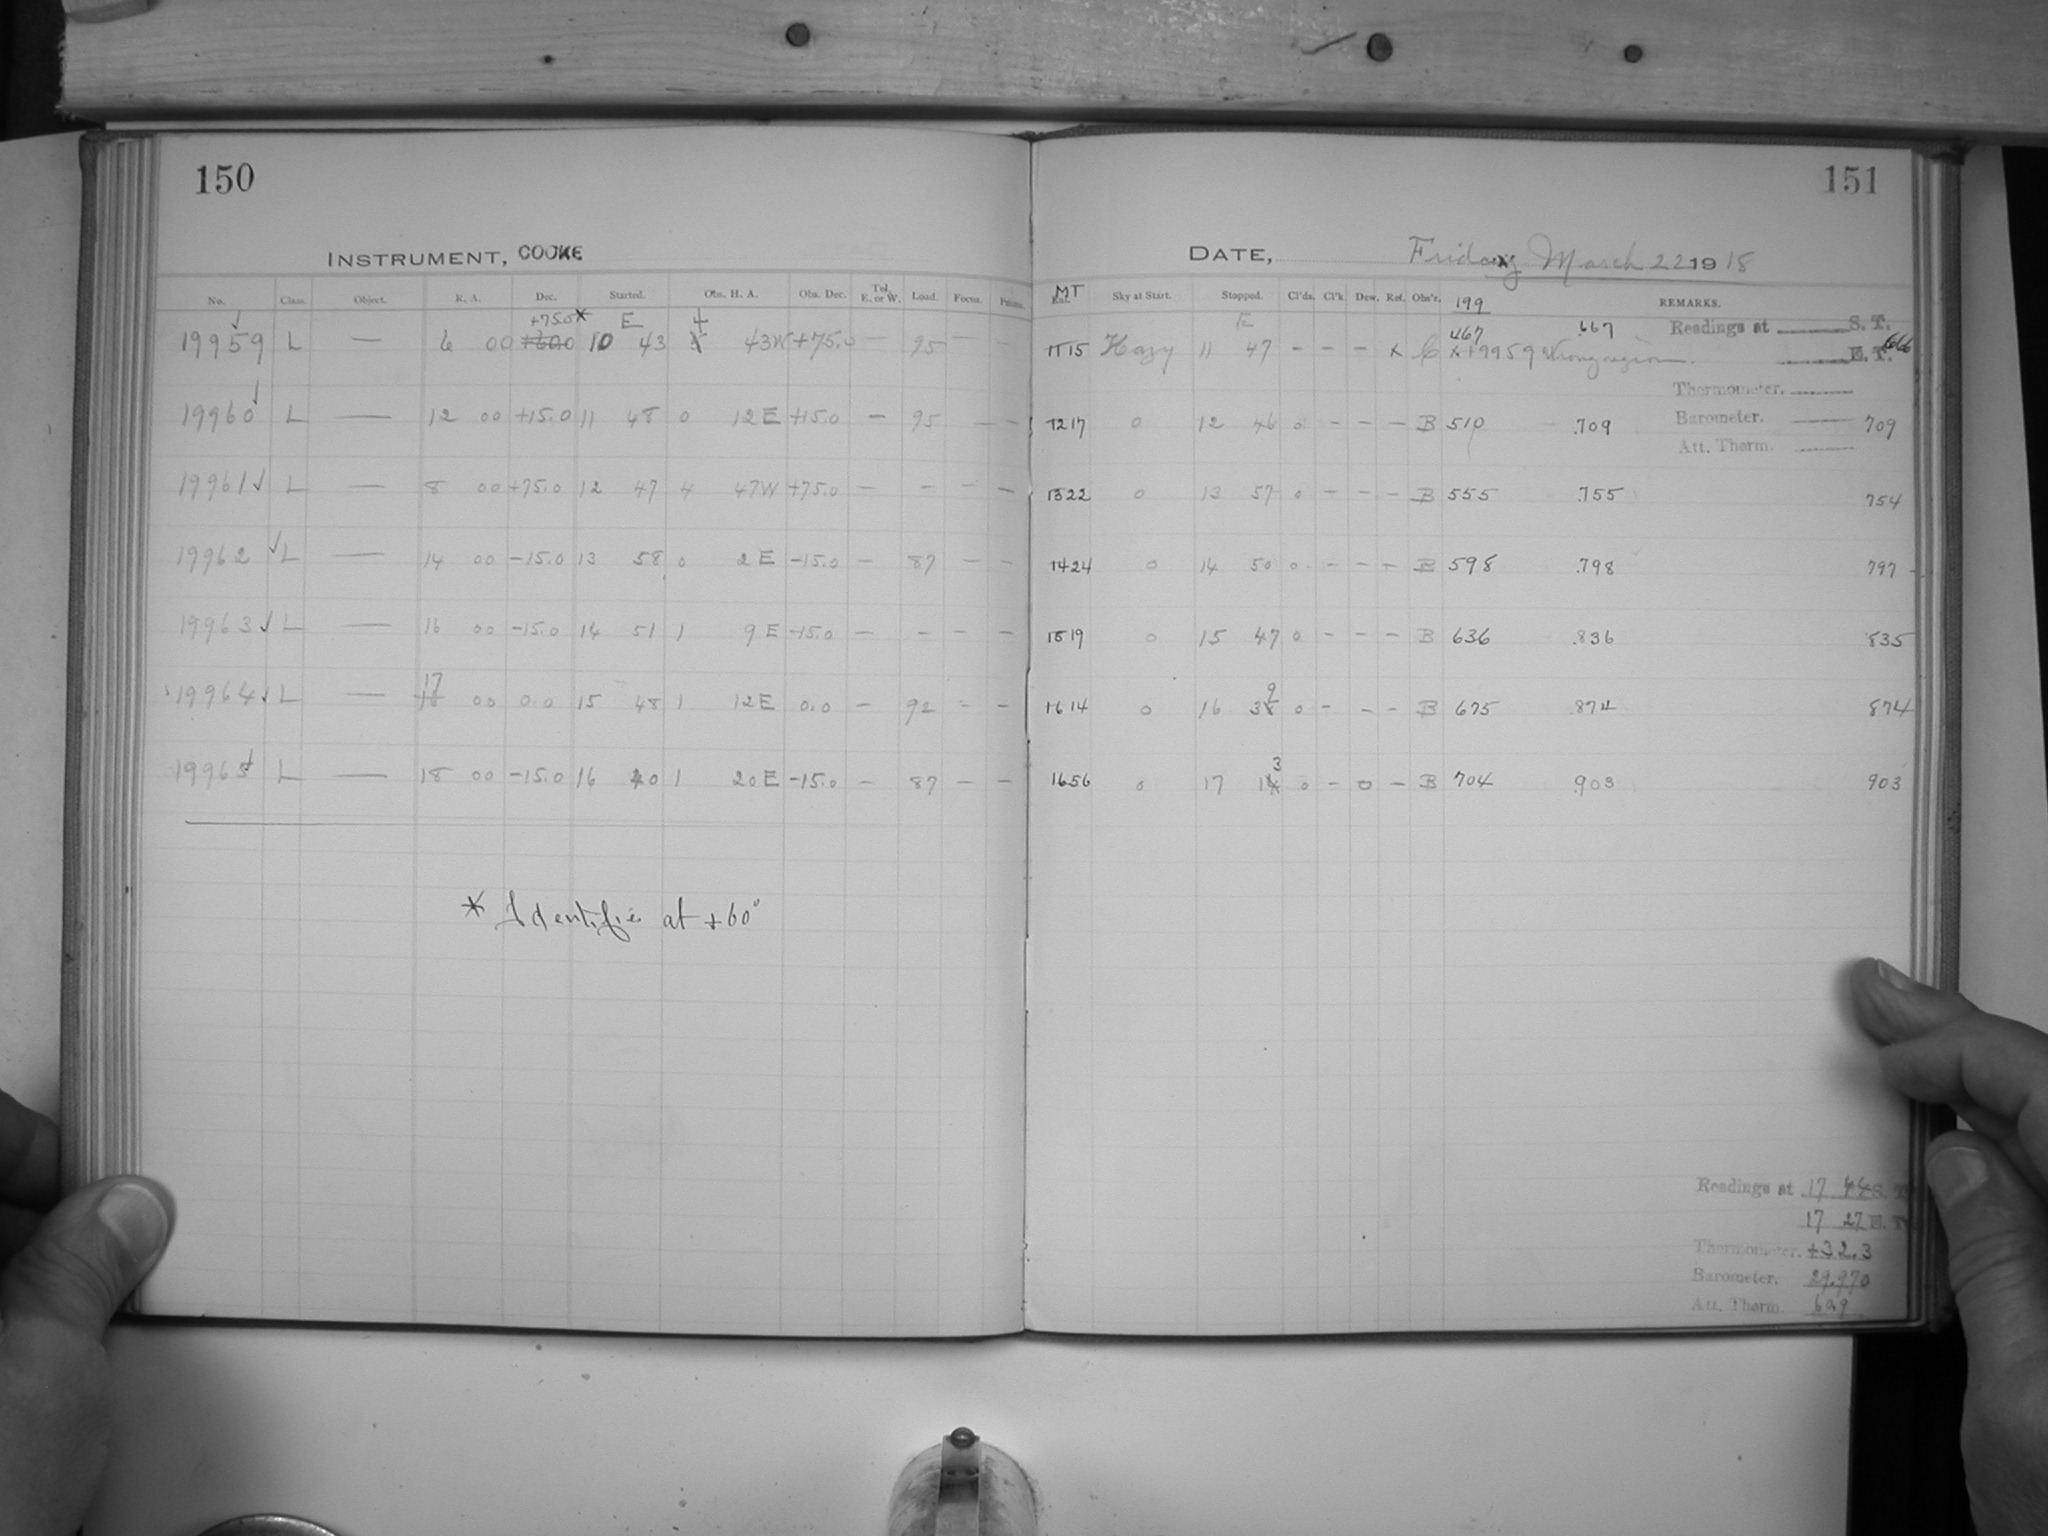 150
INSTRUMENT, COOKE
No. Class. Object. R. A. Dec. Started. Obs. H. A. Obs. Dec. Tel. E. or W. Load. Focus.
+75.0* E 4
19959 L — 6 00 +60.0 10 43 43W +75.0 — 95 — —
19960 L — 12 00 +15.0 11 48 0 12 E +15.0 — 95 — —
19961 L — 8 00 +75.0 12 47 4 47W +75.0 — — — —
19962 L — 14 00 -15.0 13 58 0 2 E -15.0 — 87 — —
19963 L — 16 00 -15.0 14 51 1 9 E -15.0 — — — —
17
19964 L — 18 00 0.0 15 48 1 12 E 0.0 — 92 — —
19965 L — 18 00 -15.0 16 20 1 20 E -15.0 — 87 — —
* Identifie at +60°
151
DATE, Friday March 22 1918
MT Sky at Start. Stopped. Cl'ds. Cl'k. Dew. Ref. Obs'r. 199 REMARKS.
E 467 .667 Readings at S. T.
1115 Hazy 11 47 - - - x C x+9959 wrong region. E. T. 666
Thermometer.
Barometer.
1217 0 12 46 0 - - - B 510 .709 709
Att. Therm.
1322 0 13 57 0 - - - B 555 .755 754
1424 0 14 50 0 - - - B 598 .798 797
1519 0 15 47 0 - - - B 636 .836 835
9
1614 0 16 38 0 - - - B 675 .874 874
3
1656 0 17 14 0 - 0 - B 704 .903 903
Readings at 17 44 S. T.
17 27 E. T.
Thermometer. +32.3
Barometer. 29.970
Att. Therm. 60.9